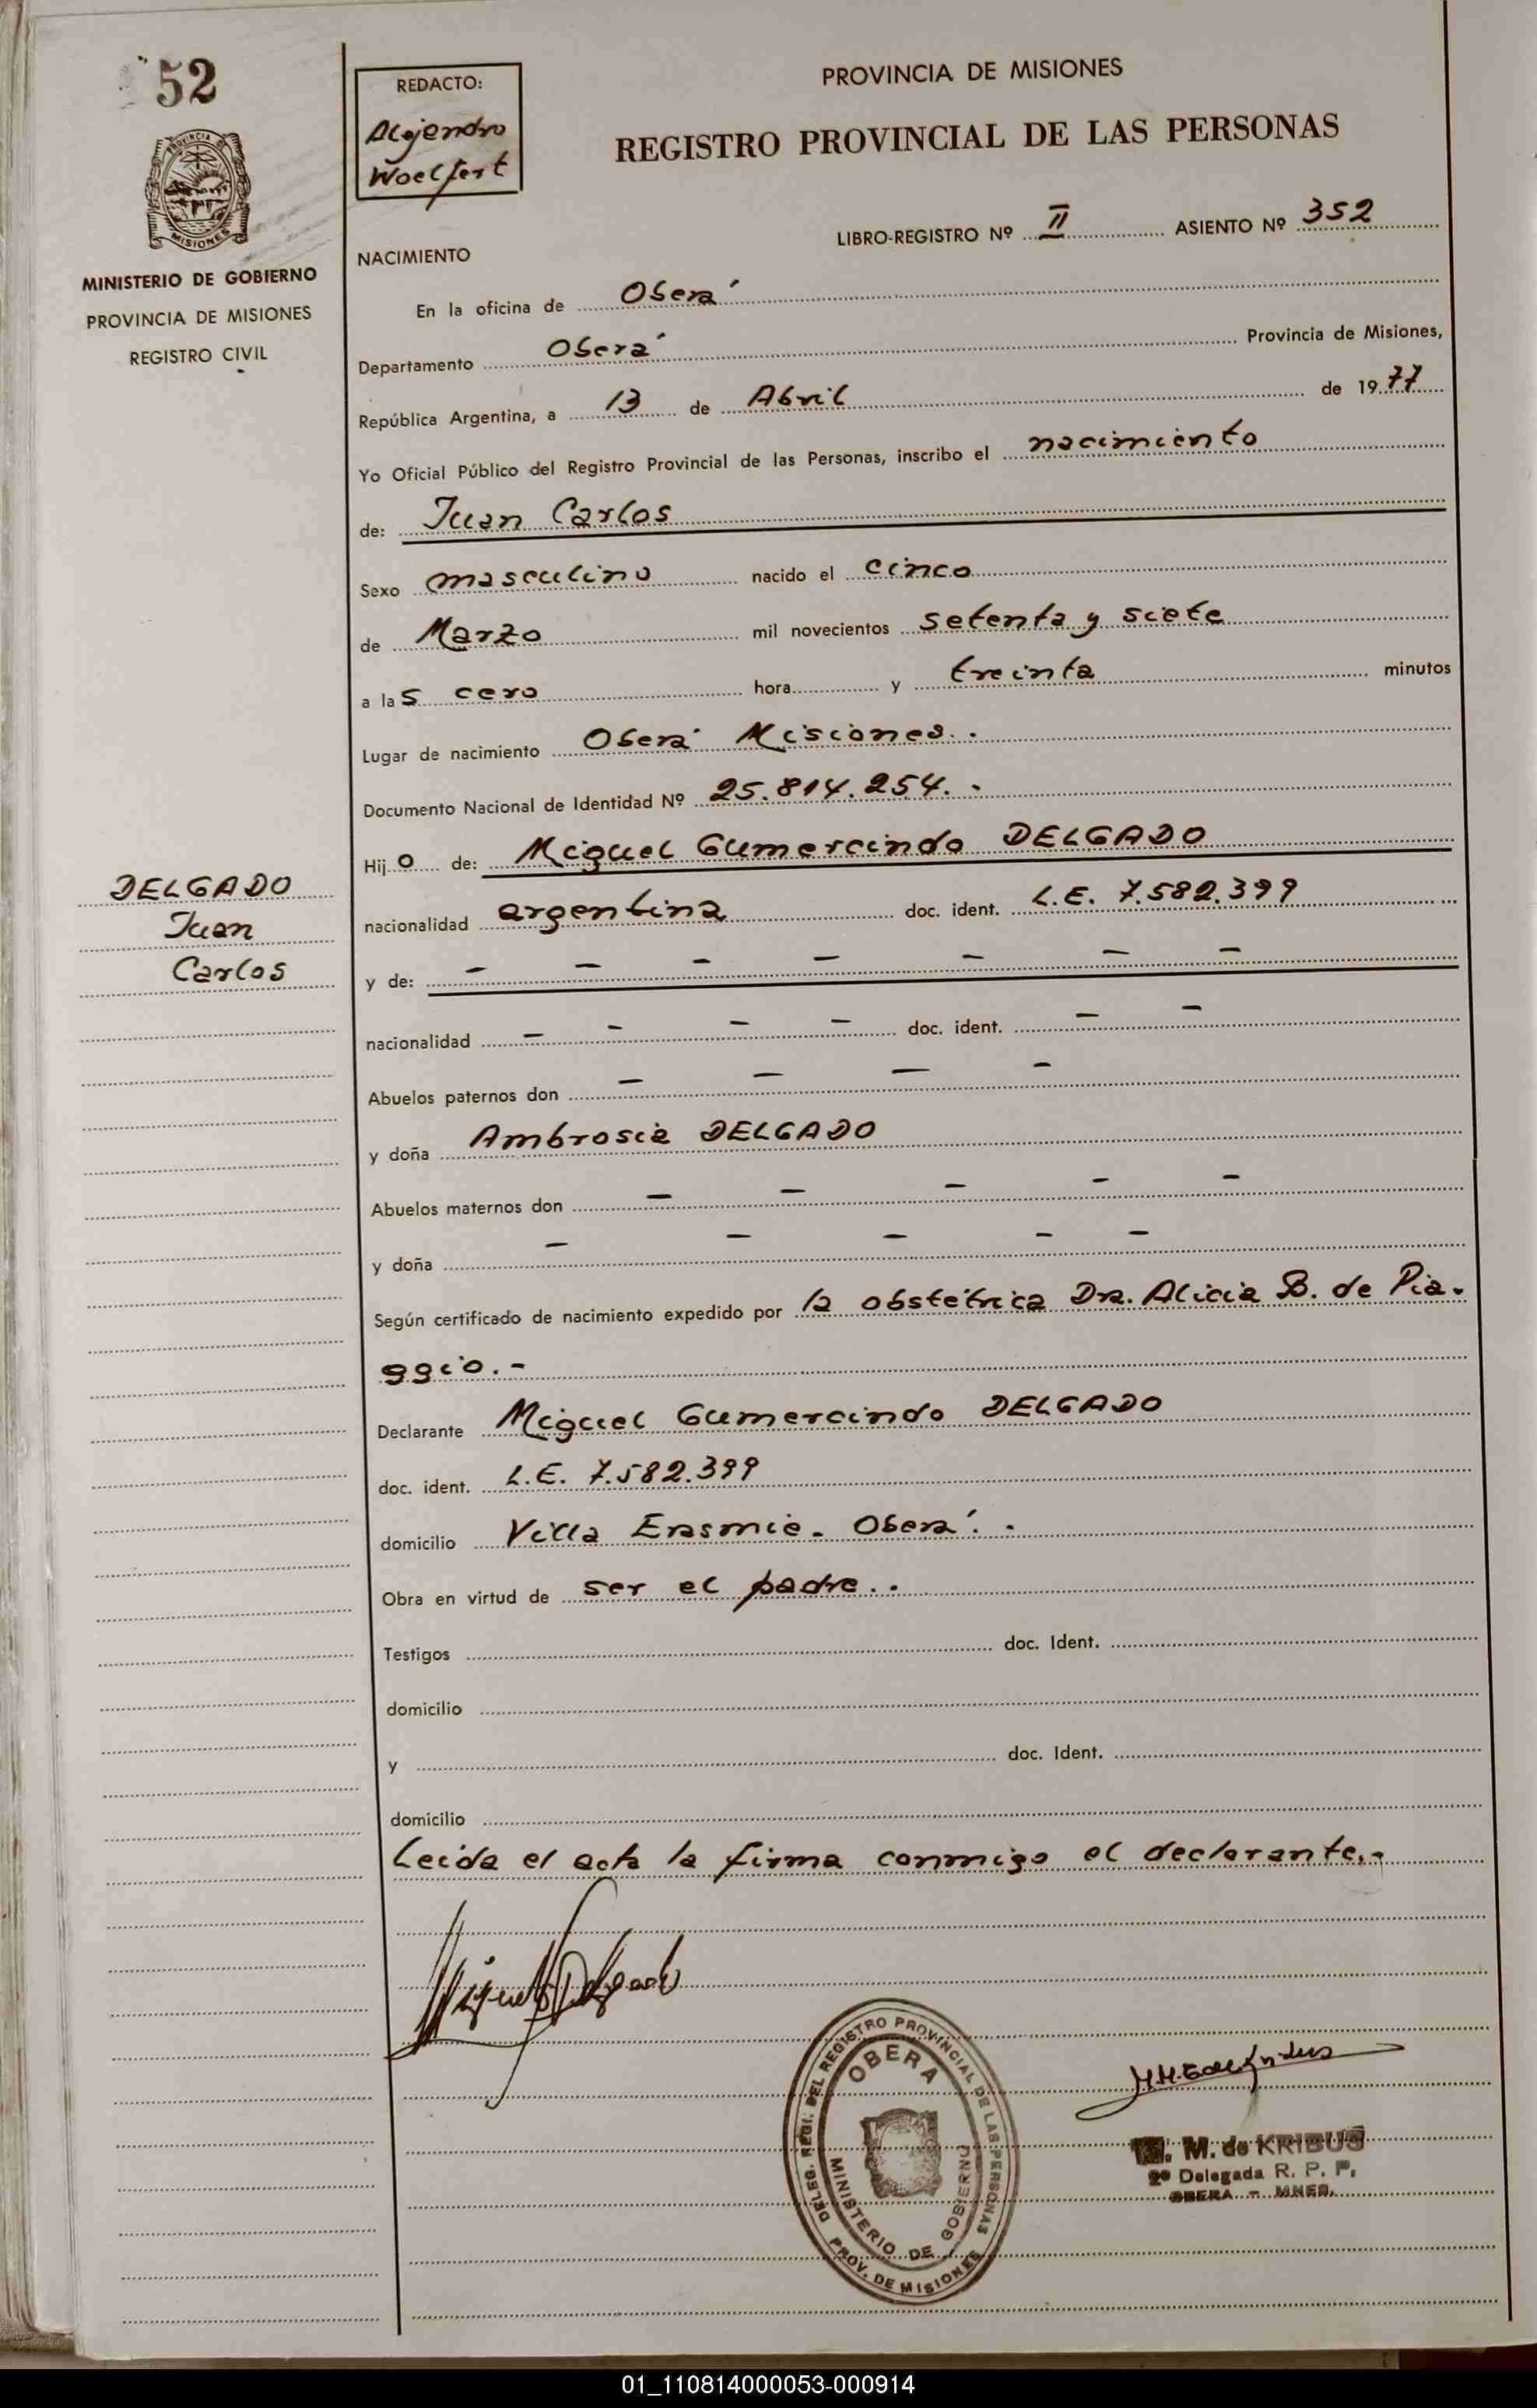 52
REDACTO:
Alejandro
Woelfert
PROVINCIA DE MISIONES
REGISTRO PROVINCIAL DE LAS PERSONAS
PROVINCIA
MISIONES
MINISTERIO DE GOBIERNO
PROVINCIA DE MISIONES
REGISTRO CIVIL
LIBRO-REGISTRO Nº II ASIENTO Nº 352
NACIMIENTO
En la oficina de Oberá
Departamento Oberá Provincia de Misiones,
República Argentina, a 13 de Abril de 1977
Yo Oficial Público del Registro Provincial de las Personas, inscribo el nacimiento
de: Juan Carlos
Sexo masculino nacido el cinco
de Marzo mil novecientos setenta y siete
a las cero hora y treinta minutos
Lugar de nacimiento Oberá Misiones. -
Documento Nacional de Identidad Nº 25.814.254. -
Hijo de: Miguel Gumercindo DELGADO
nacionalidad argentina doc. ident. L.E. 7.582.399
DELGADO
Juan
Carlos
y de: — — — — — — —
nacionalidad — — — — doc. ident. — —
Abuelos paternos don — — — —
y doña Ambrosia DELGADO
Abuelos maternos don — — — — —
y doña — — — — —
Según certificado de nacimiento expedido por la obstétrica Dra. Alicia B. de Pia-
ggio. -
Declarante Miguel Gumercindo DELGADO
doc. ident. L.E. 7.582.399
domicilio Villa Erasmie - Oberá. -
Obra en virtud de ser el padre. -
Testigos doc. Ident.
domicilio
y doc. Ident.
domicilio
Leida el acta la firma conmigo el declarante. -
Miguel G Delgado
DELEG. REGI. DEL REGISTRO PROVINCIAL DE LAS PERSONAS
OBERA
MINISTERIO DE GOBIERNO
PROV. DE MISIONES
M. de KRIBUS
2ª Delegada R. P. P.
OBERA - MNES.
01_110814000053-000914